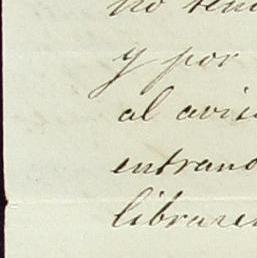 no ten
y por
al avis
entrand
librare